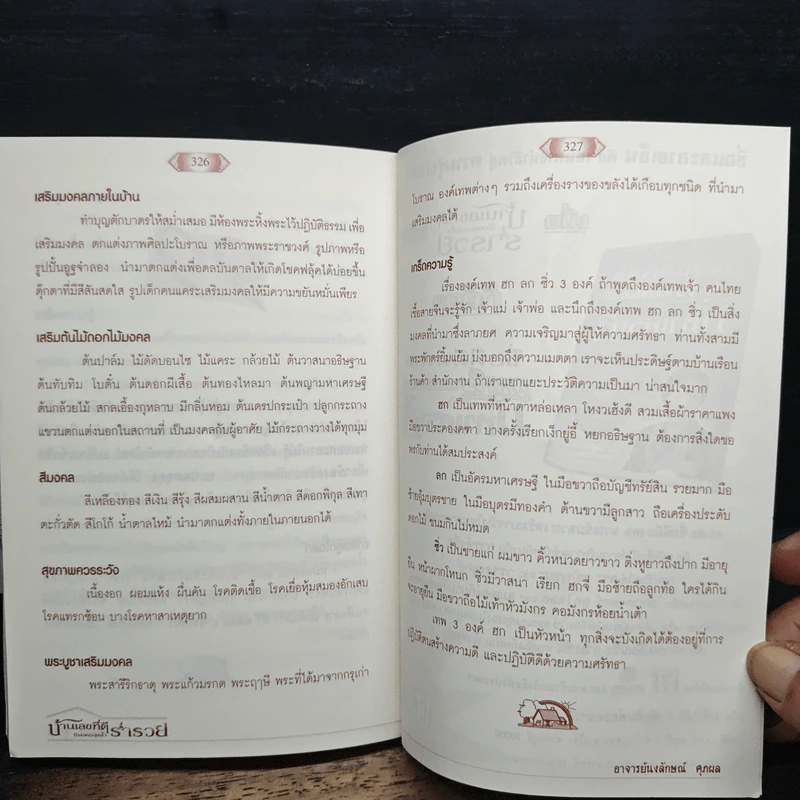 326
เสริมมงคลภายในบ้าน
ทำบุญตักบาตรให้สม่ำเสมอ มีห้องพระหิ้งพระไว้ปฏิบัติธรรม เพื่อ
เสริมมงคล ตกแต่งภาพศิลปะโบราณ หรือภาพพระราชวงศ์ รูปภาพหรือ
รูปปั้นอูฐจำลอง นำมาตกแต่งเพื่อดลบันดาลให้เกิดโชคฟลุ้คได้บ่อยขึ้น
ตุ๊กตาที่มีสีสันสดใส รูปเด็กคนแคระเสริมมงคลให้มีความขยันหมั่นเพียร
เสริมต้นไม้ดอกไม้มงคล
ต้นปาล์ม ไม้ดัดบอนไซ ไม้แคระ กล้วยไม้ ต้นวาสนาอธิษฐาน
ต้นทับทิม โบตั๋น ต้นดอกผีเสื้อ ต้นทองไหลมา ต้นพญามหาเศรษฐี
ต้นกล้วยไม้ สกลเอื้องกุหลาบ มีกลิ่นหอม ต้นเดรปกระเป๋า ปลูกกระถาง
แขวนตกแต่งนอกในสถานที่ เป็นมงคลกับผู้อาศัย ไม้กระถางวางได้ทุกมุม
สีมงคล
สีเหลืองทอง สีเงิน สีรุ้ง สีผสมผสาน สีน้ำตาล สีดอกพิกุล สีเทา
ตะกั่วตัด สีโกโก้ น้ำตาลไหม้ นำมาตกแต่งทั้งภายในภายนอกได้
สุขภาพควรระวัง
เนื้องอก ผอมแห้ง ผื่นคัน โรคติดเชื้อ โรคเยื่อหุ้มสมองอักเสบ
โรคแทรกซ้อน บางโรคหาสาเหตุยาก
พระบูชาเสริมมงคล
พระสารีริกธาตุ พระแก้วมรกต พระฤๅษี พระที่ได้มาจากกรุเก่า
บ้านเลขที่ดี
ร่ำรวย
327
โบราณ องค์เทพต่างๆ รวมถึงเครื่องรางของขลังได้เกือบทุกชนิด ที่นำมา
เสริมมงคลได้
เกร็ดความรู้
เรื่ององค์เทพ ฮก ลก ซิ่ว 3 องค์ ถ้าพูดถึงองค์เทพเจ้า คนไทย
เชื้อสายจีนจะรู้จัก เจ้าแม่ เจ้าพ่อ และนึกถึงองค์เทพ ฮก ลก ซิ่ว เป็นสิ่ง
มงคลที่นำมาซึ่งลาภยศ ความเจริญมาสู่ผู้ให้ความศรัทธา ท่านทั้งสามมี
พระพักตร์ยิ้มแย้ม บ่งบอกถึงความเมตตา เราจะเห็นประดิษฐ์ตามบ้านเรือน
ร้านค้า สำนักงาน ถ้าเราแยกแยะประวัติความเป็นมา น่าสนใจมาก
ฮก เป็นเทพที่หน้าตาหล่อเหลา โหงวเฮ้งดี สวมเสื้อผ้าราคาแพง
มือขวาประคองคฑา บางครั้งเรียกเง็กยู่อี้ หยกอธิษฐาน ต้องการสิ่งใดขอ
พรกับท่านได้สมประสงค์
ลก เป็นอัครมหาเศรษฐี ในมือขวาถือบัญชีทรัย์สิน รวยมาก มือ
ซ้ายอุ้มบุตรชาย ในมือบุตรมีทองคำ ด้านขวามีลูกสาว ถือเครื่องประดับ
ดอกไม้ ขนมกินไม่หมด
ซิ่ว เป็นชายแก่ ผมขาว คิ้วหนวดยาวขาว ติ่งหูยาวถึงปาก มีอายุ
ยืน หน้าผากโหนก ซิ่วมีวาสนา เรียก ฮกจี่ มือซ้ายถือลูกท้อ ใครได้กิน
จะอายุยืน มือขวาถือไม้เท้าหัวมังกร คอมังกรห้อยน้ำเต้า
เทพ 3 องค์ ฮก เป็นหัวหน้า ทุกสิ่งจะบังเกิดได้ต้องอยู่ที่การ
ปฏิบัติตนสร้างความดี และปฏิบัติดีด้วยความศรัทธา
อาจารย์นงลักษณ์ ศุภผล